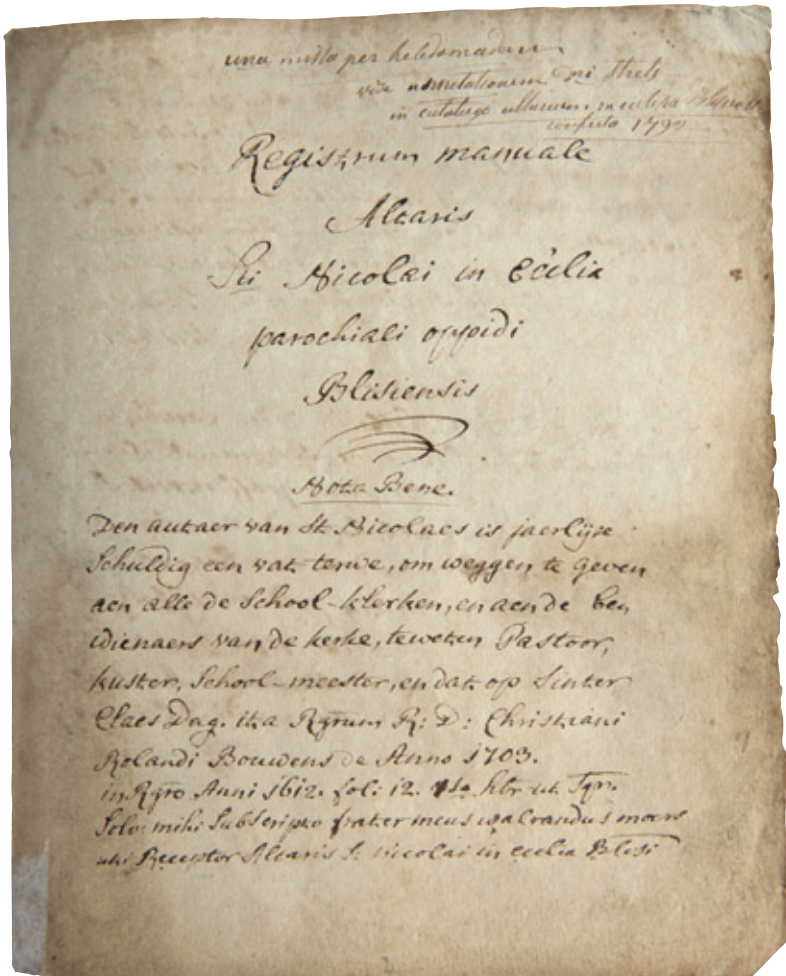 una missa per hebdomadam
vide annotationem dni Strels
in catalogo altarium in ecclesia
confecto 179
Registrum manuale
Altaris
Sti Nicolai in Ecclia
parochiali oppidi
Blisiensis
Nota Bene.
Den autaer van St Nicolaes is jaerlijxe
Schuldig een vat terwe, om weggen te geven
aen alle de School-klerken, en aen de ben
idienaers van de kerke, teweten Pastoor,
kuster, School-meester, en dat op Sinter
Claes Dag. ita Rgrum R: D: Christiani
Rolandi Bouwens de Anno 1703.
in Rgro Anni 1612. fol: 12. hbr ut Sqr.
Solv: mihi Subscripto frater meus walrandus moers
uti Receptor Altaris St nicolai in ecclia Blisi